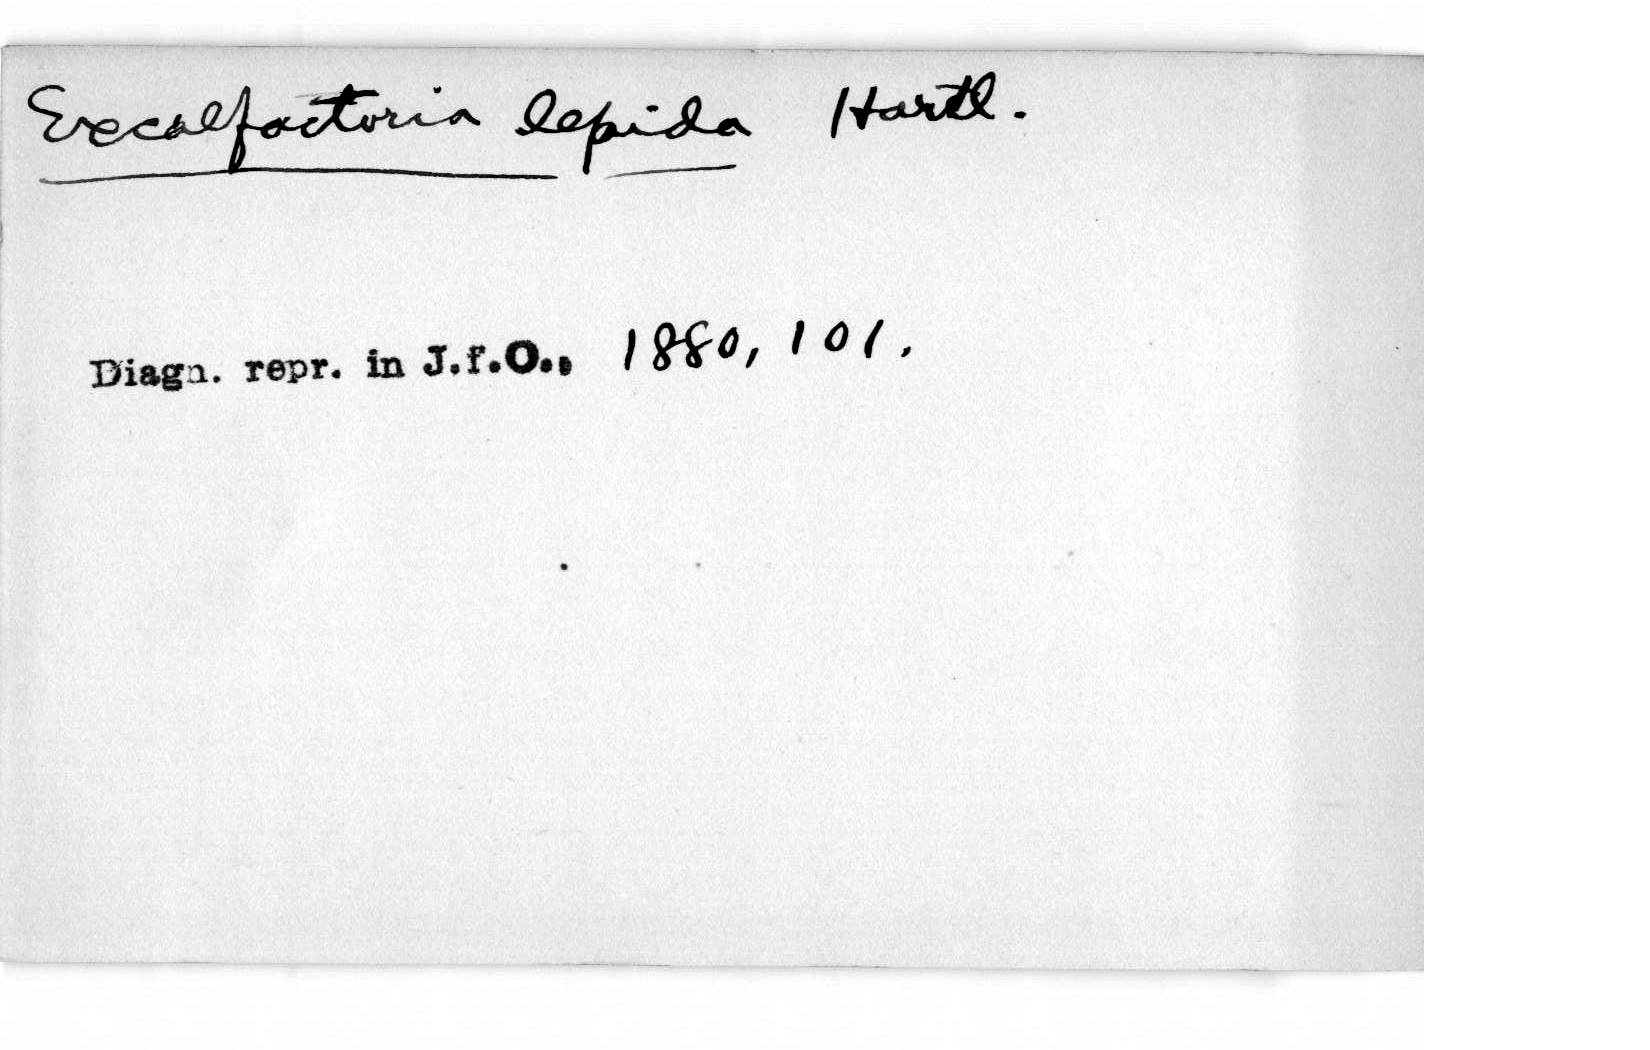 Excalfactoria lepida Hartl.
Diagn. repr. in J.f.O., 1880, 101.